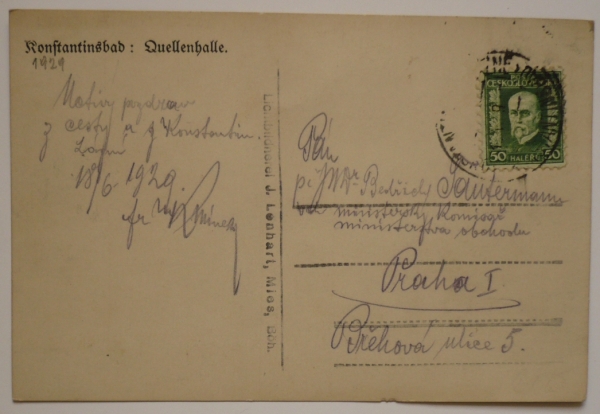 Konstantinsbad: Quellenhalle.
1929
pozdrav
z cesty a z Konstantin.
Lázní
18/6 1929.
Lichtdruckerei J. Lenhart, Mies, Böh.
ČESKOSLO
50 HALÉŘŮ 50
Pán
p. JUDr Bedřich Sautermann
ministersk. komisař
ministerstva obchodu
Praha I.
Břehová ulice 5.